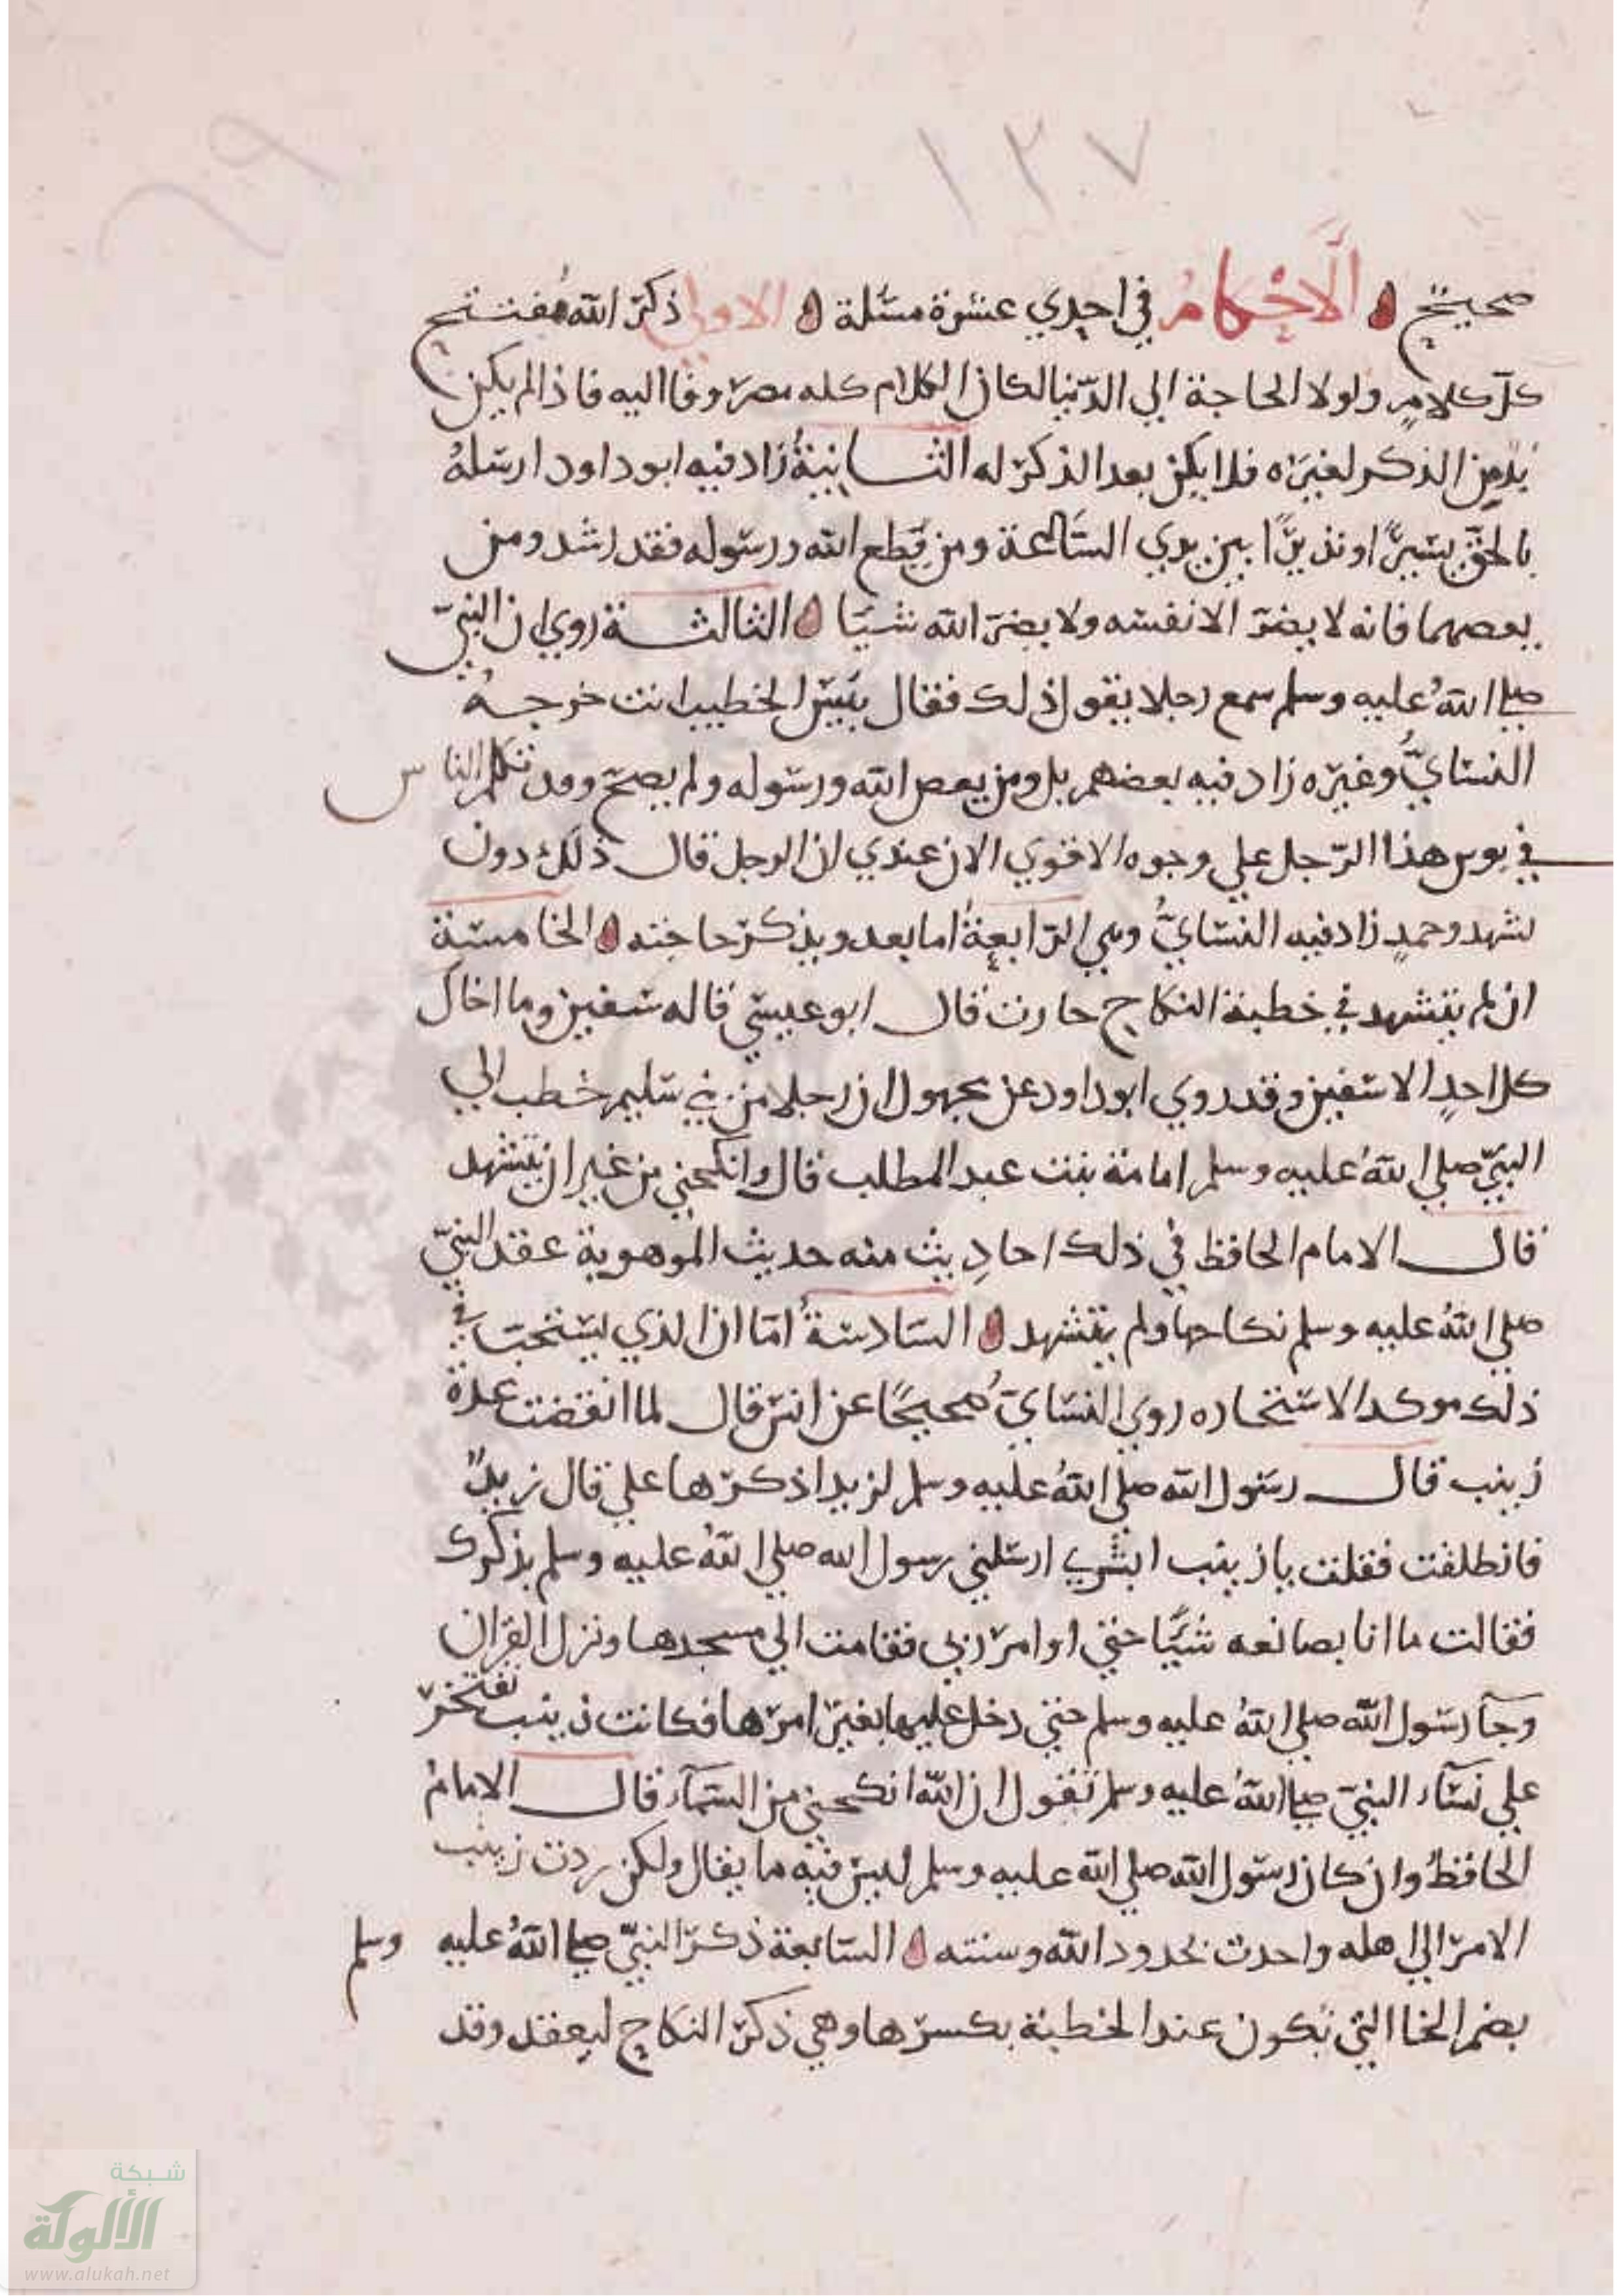 ١٣٧
صحيح الاحكام في احدي عشرة مسئلة الاولي ذكر الله مفتتح
كل كلام ولولا الحاجة الي الدنيا لكان الكلام كله مصروفا اليه فاذا لم يكن
بد من الذكر لغيره فلا يكن بعد الذكر له الثانية زاد فيه ابو داود ارسله
بالحق بشيرا ونذيرا بين يدي الساعة ومن يطع الله ورسوله فقد رشد ومن
يعصهما فانه لا يضر الا نفسه ولا يضر الله شيا الثالثة روي ان النبي
صلي الله عليه وسلم سمع رجلا يقول ذلك فقال بيس الخطيب انت خرجه
النساي وغيره زاد فيه بعضهم بل ومن يعص الله ورسوله ولم يصح وقد تكلم الناس
في بوس هذا الرجل علي وجوه الاقوي الان عندي ان الرجل قال ذلك دون
تشهد وحمد زاد فيه النساي وهي الرابعة اما بعد ويذكر حاجته الخامسة
ان لم يتشهد في خطبة النكاح جازت قال ابو عيسي قاله سفين وما اخال
كل احد الا سفين وقد روي ابو داود عن مجهول ان رجلا من بني سليم خطب الي
النبي صلي الله عليه وسلم امامة بنت عبد المطلب قال وانكحني من غير ان يتشهد
قال الامام الحافظ في ذلك احاديث منه حديث الموهوبة عقد النبي
صلي الله عليه وسلم نكاحها ولم يتشهد السادسة اما ان الذي يستحب في
ذلك موكد الاستخاره روي النساي صحيحا عن انس قال لما انقضت عدة
زينب قال رسول الله صلي الله عليه وسلم لزيد اذكرها علي قال زيد
فانطلقت فقلت يا زينب ابشري ارسلني رسول الله صلي الله عليه وسلم بذكرك
فقالت ما انا بصانعه شيا حتي اوامر ربي فقامت الي مسجدها ونزل القران
وجآ رسول الله صلي الله عليه وسلم حتي دخل عليها بغير امرها فكانت زينب تفتخر
علي نسآء النبي صلي الله عليه وسلم تقول ان الله انكحني من السمآء قال الامام
الحافظ وان كان رسول الله صلي الله عليه وسلم ليس فيه ما يقال ولكن ردت زينب
الامر الي اهله واخذت بحدود الله وسنته السابعة ذكر النبي صلي الله عليه وسلم
بضم الخا التي تكون عند الخطبة بكسرها وهي ذكر النكاح ليعقد وقد
شبكة
الألوكة
www.alukah.net